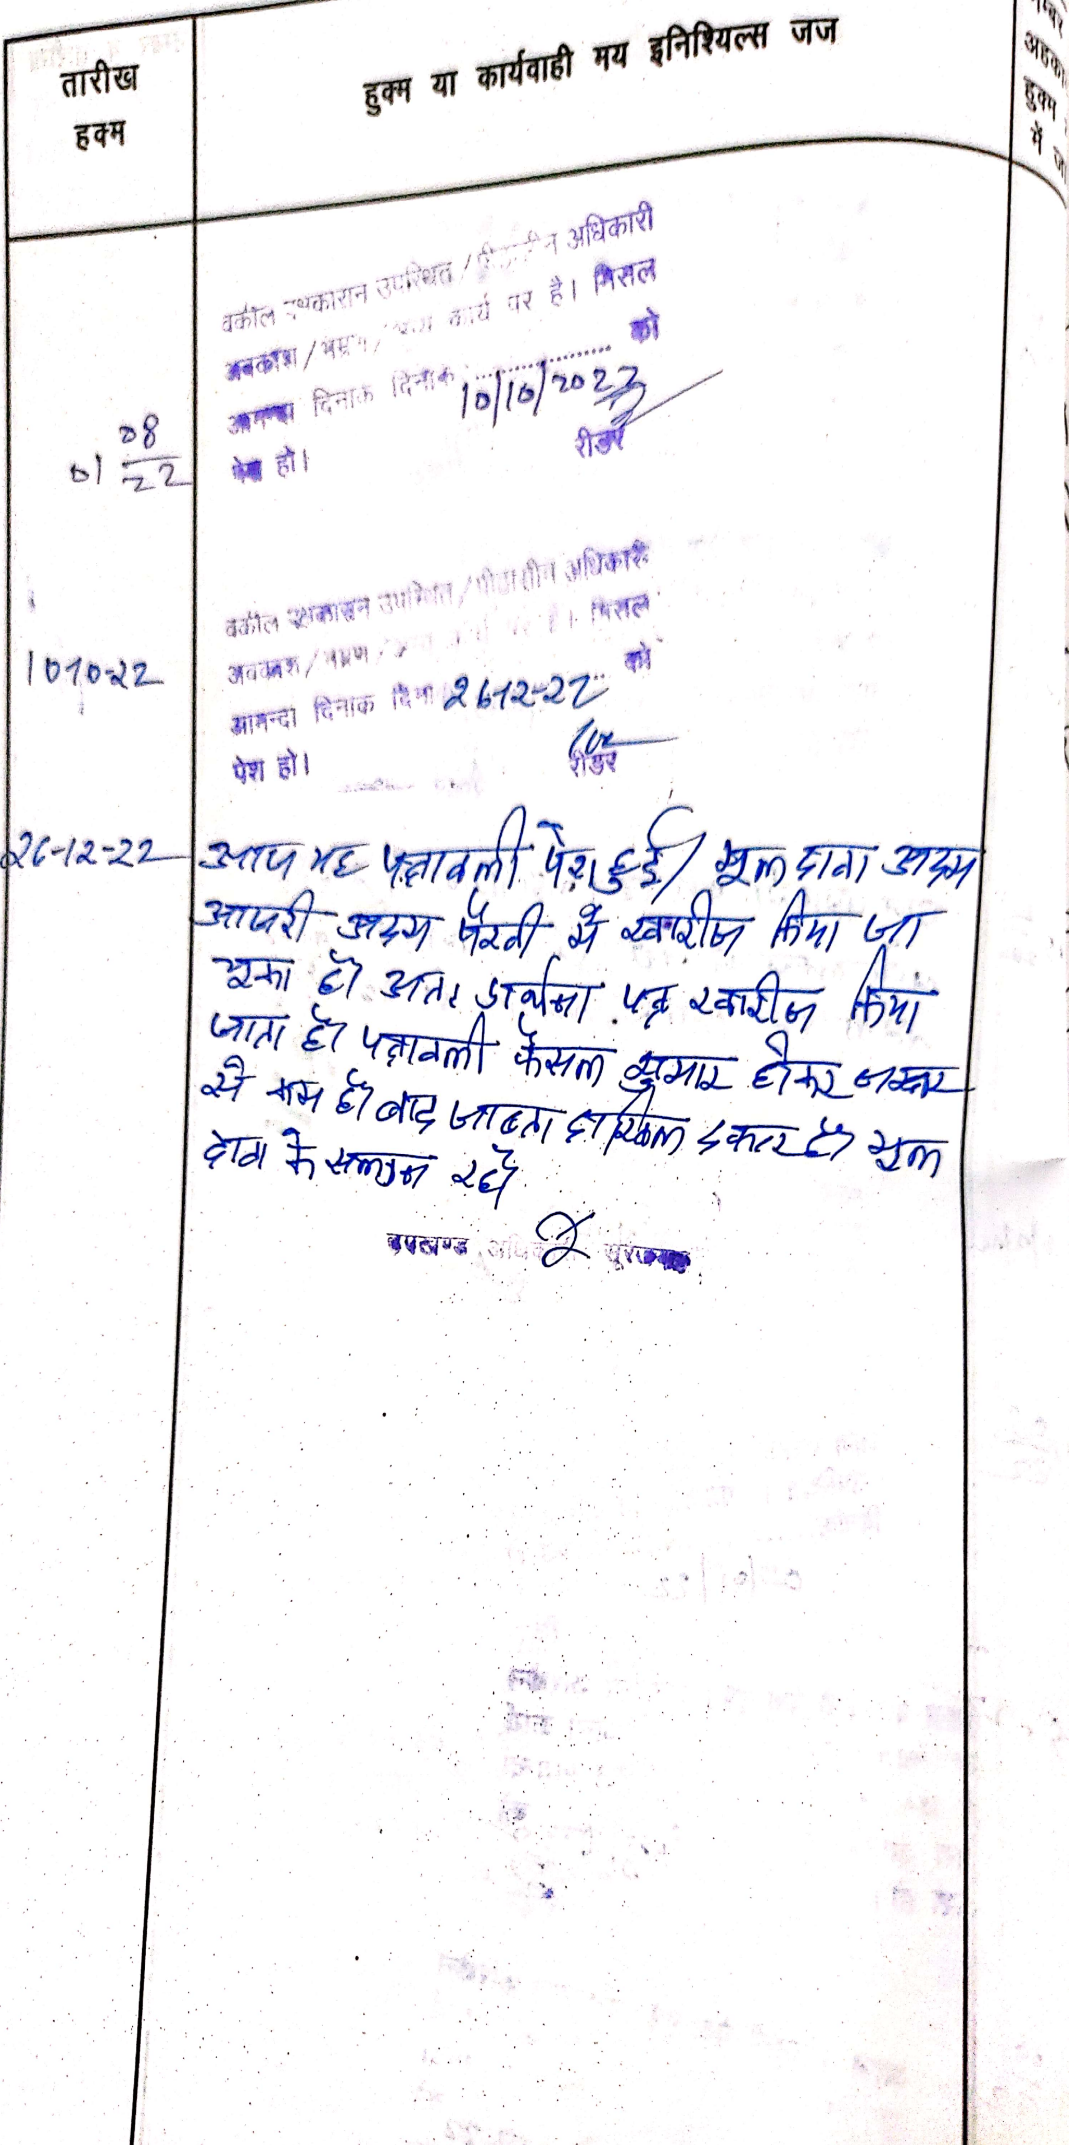 तारीख
हुक्म
हुक्म या कार्यवाही मय इनिशियल्स जज
म्बर
अहका
हुक्म
में जा
01 08/22
वकील उपस्थित / अधिकारी
अवकाश / कार्य पर है। मिसल
आमन्दा दिनांक दिनांक 10/10/2022 को
पेश हो।
रीडर
10-10-22
वकील उपस्थित / पीठासीन अधिकारी
अवकाश / भ्रमण / है। मिसल
आमन्दा दिनांक 26-12-22 को
पेश हो।
रीडर
26-12-22
आज यह पत्रावली पेश हुई। मूल दावा अदम
आपरी अदम पैरवी में खारीज किया जा
चुका है। अतः प्रार्थना पत्र खारीज किया
जाता है। पत्रावली फैसल सुमार होकर नम्बर
से कम हो बाद जाब्ता दाखिल दफ्तर हो मूल
दावा के सलग्न रहे।
उपखण्ड अधिकारी सूरजगढ़